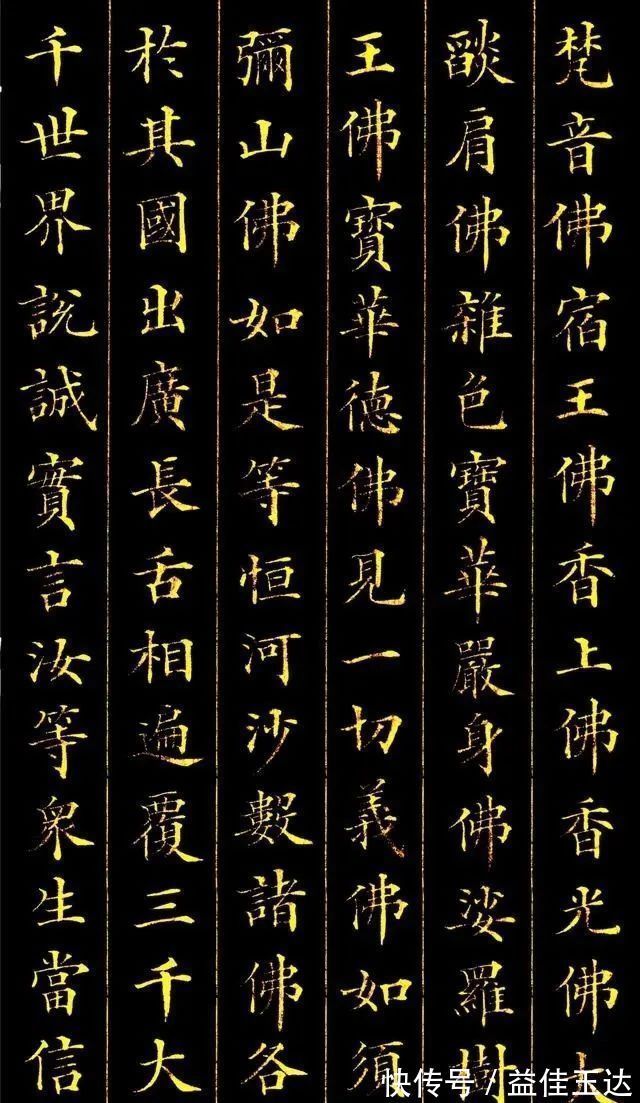 梵音佛宿王佛香上佛香光佛
燄肩佛雜色寶華嚴身佛娑羅樹
王佛寶華德佛見一切義佛如須
彌山佛如是等恒河沙數諸佛各
於其國出廣長舌相遍覆三千大
千世界說誠實言汝等眾生當信
快传号／益佳玉达